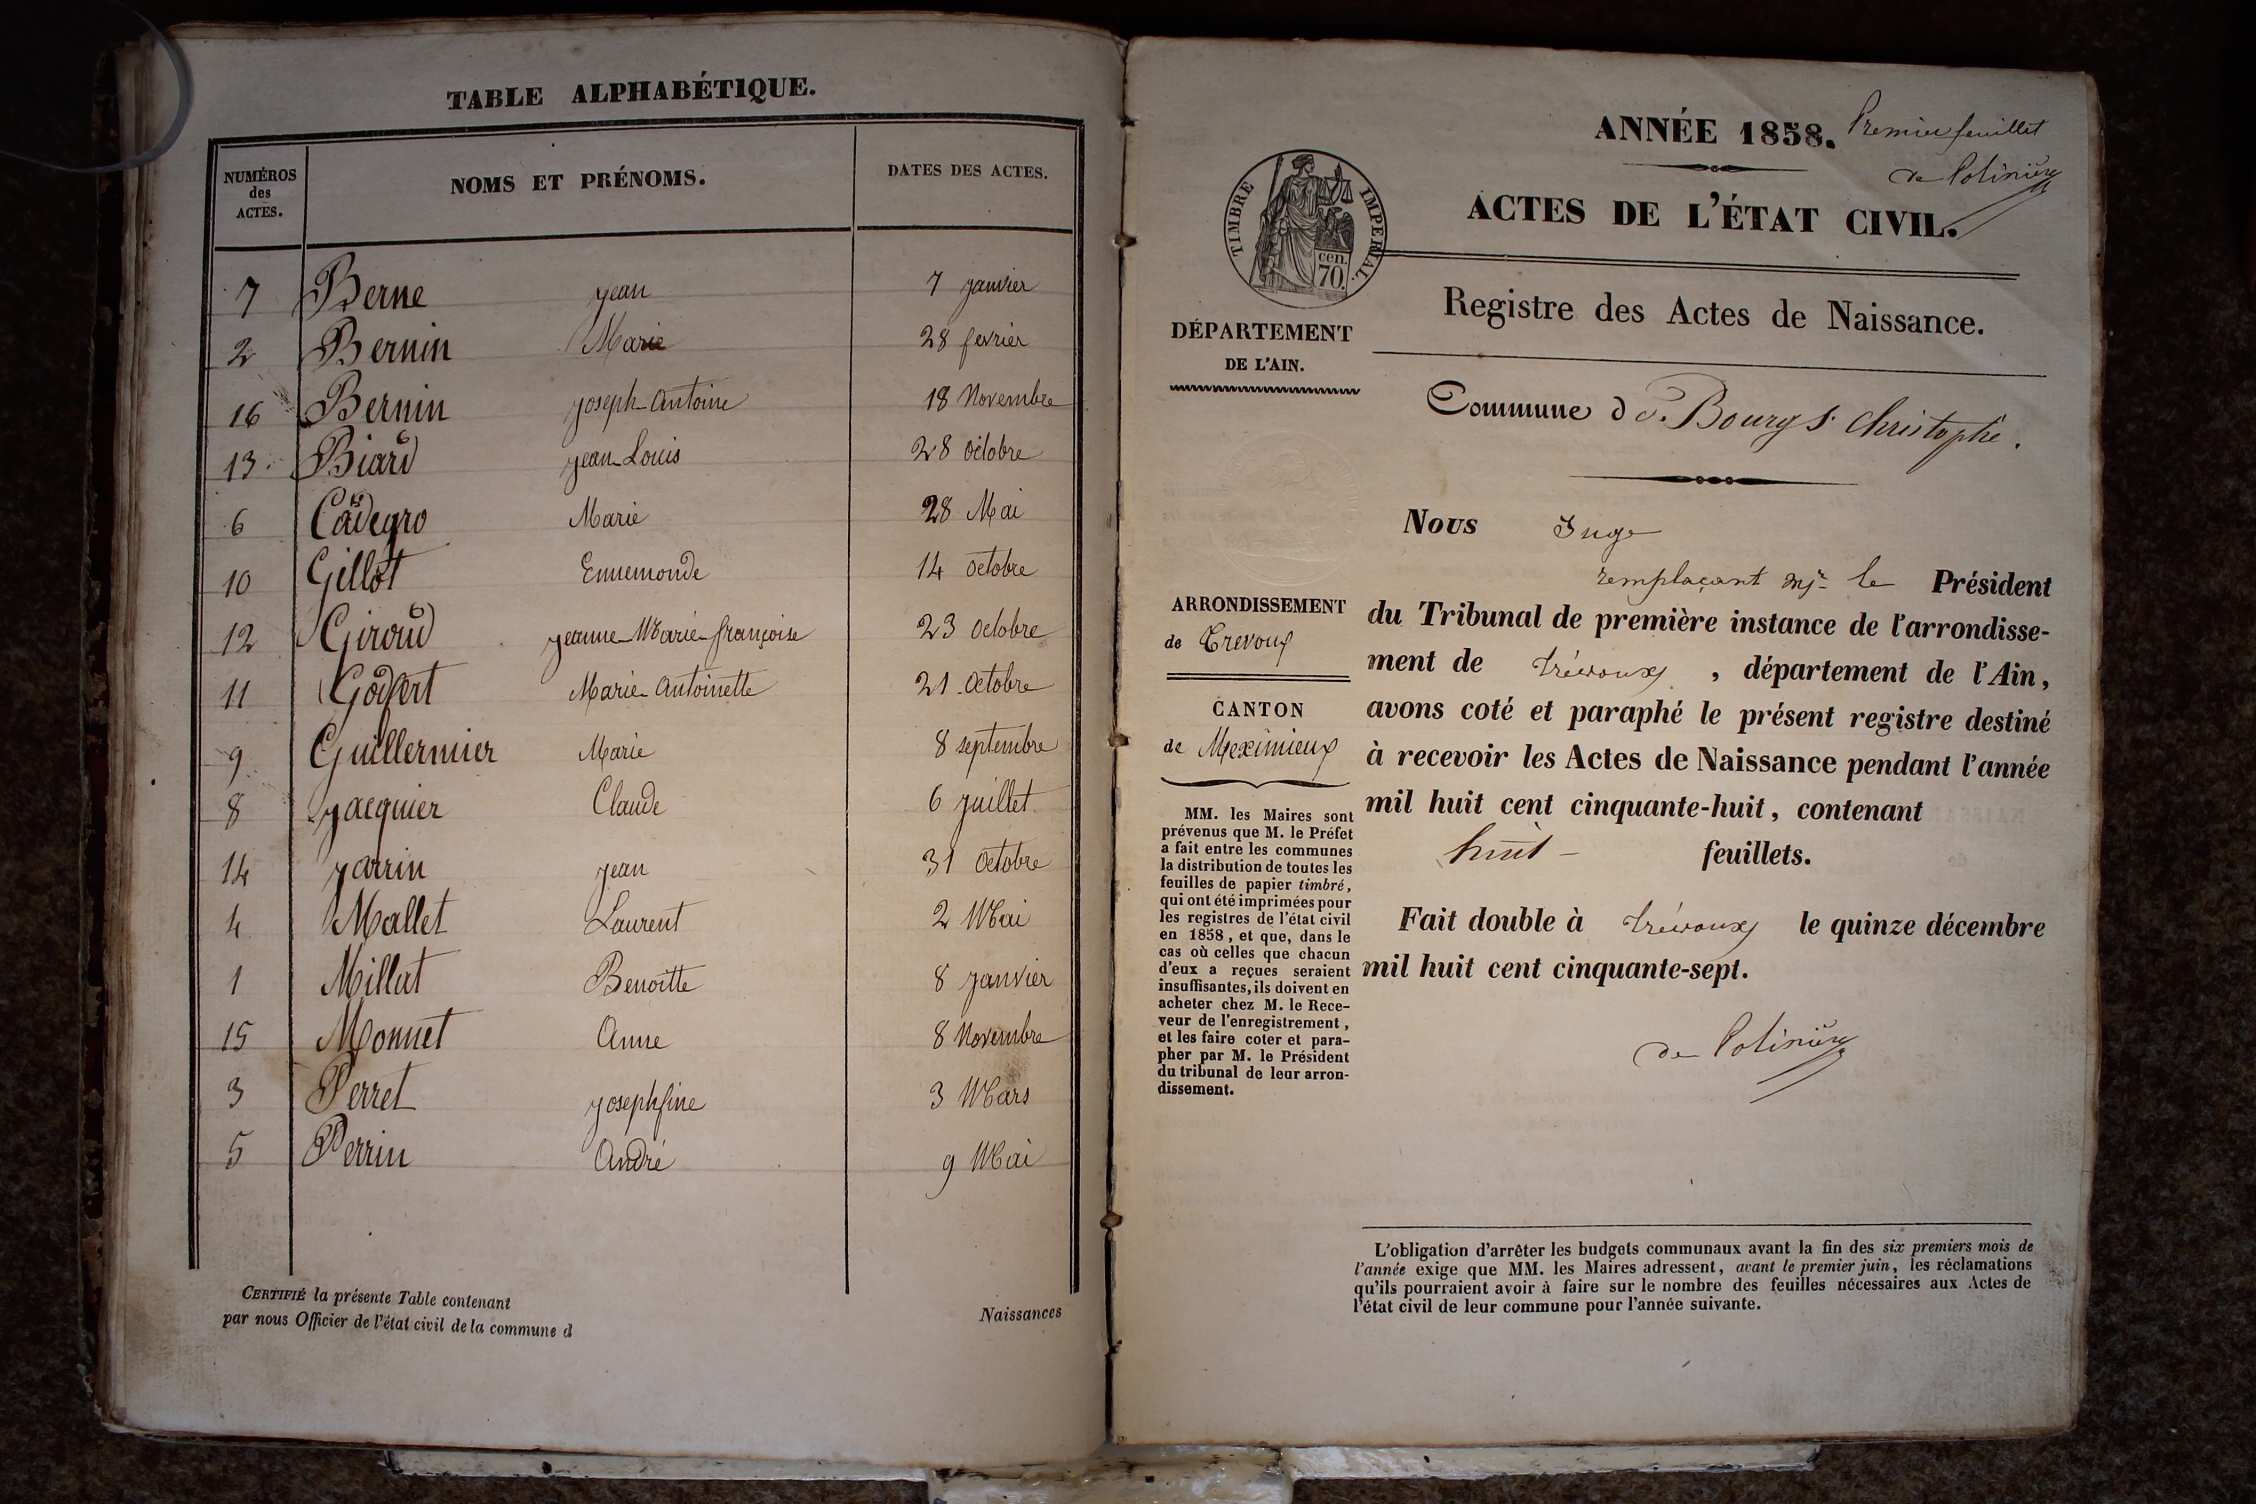 TABLE ALPHABÉTIQUE.
NUMÉROS des ACTES. NOMS ET PRÉNOMS. DATES DES ACTES.
7 Berne Jean 7 Janvier
2 Bernin Marie 28 fevrier
16 Bernin Joseph-Antoine 18 Novembre
13 Biard Jean-Louis 28 octobre
6 Cadegro Marie 28 Mai
10 Gillot Ennemonde 14 octobre
12 Giroud Jeanne-Marie-françoise 23 octobre
11 Marie-Antoinette 21 Octobre
9 Guillermier Marie 8 septembre
8 Jacquier Claude 6 Juillet
14 Jarrin Jean 31 octobre
4 Mallet Laurent 2 Mai
1 Millat Benoitte 8 Janvier
15 Monnet Anne 8 Novembre
3 Perret Josephfine 3 Mars
5 Perrin André 9 Mai
CERTIFIÉ la présente Table contenant Naissances
par nous Officier de l'état civil de la commune d
ANNÉE 1858. Premier feuillet
de Polinière
ACTES DE L'ÉTAT CIVIL.
TIMBRE IMPERIAL.
cen.
70.
Registre des Actes de Naissance.
DÉPARTEMENT
DE L'AIN.
Commune de Bourg St Christophe.
ARRONDISSEMENT
de Trevoux
CANTON
de Meximieux
MM. les Maires sont
prévenus que M. le Préfet
a fait entre les communes
la distribution de toutes les
feuilles de papier timbré,
qui ont été imprimées pour
les registres de l'état civil
en 1858, et que, dans le
cas où celles que chacun
d'eux a reçues seraient
insuffisantes, ils doivent en
acheter chez M. le Rece-
veur de l'enregistrement,
et les faire coter et para-
pher par M. le Président
du tribunal de leur arron-
dissement.
Nous Juge
remplaçant Mr le Président
du Tribunal de première instance de l'arrondisse-
ment de trévoux, département de l'Ain,
avons coté et paraphé le présent registre destiné
à recevoir les Actes de Naissance pendant l'année
mil huit cent cinquante-huit, contenant
huit - feuillets.
Fait double à trévoux le quinze décembre
mil huit cent cinquante-sept.
de Polinière
L'obligation d'arrêter les budgets communaux avant la fin des six premiers mois de
l'année exige que MM. les Maires adressent, avant le premier juin, les réclamations
qu'ils pourraient avoir à faire sur le nombre des feuilles nécessaires aux Actes de
l'état civil de leur commune pour l'année suivante.